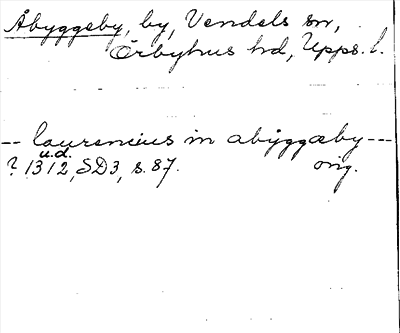 Åbyggeby, by, Vendels sn,
Örbyhus hd, Upps. l.
-- laurencius in abyggæby ---
u.d.
? 1312, SD3, s. 87. orig.